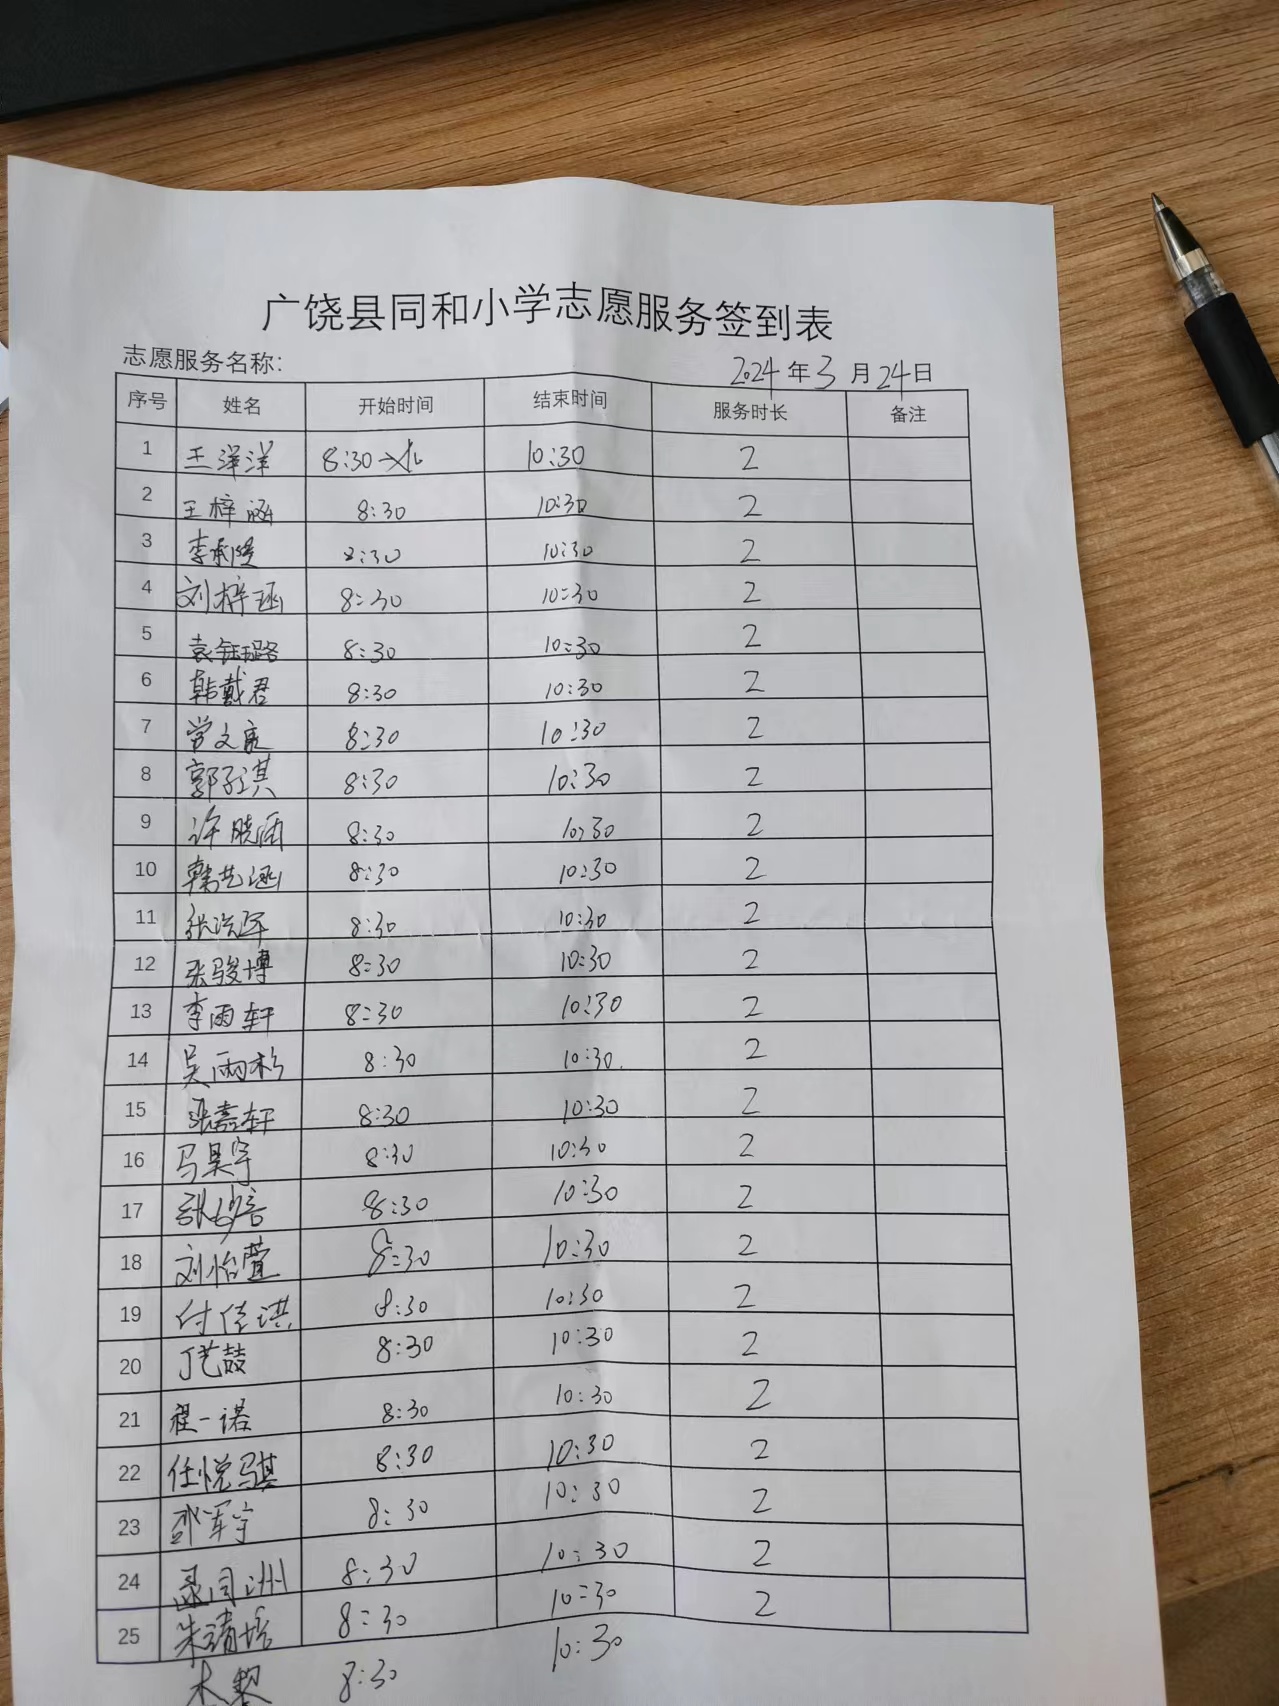 广饶县同和小学志愿服务签到表
志愿服务名称： 2024年3月24日
序号 姓名 开始时间 结束时间 服务时长 备注
1 王洋洋 8:30 10:30 2
2 王梓涵 8:30 10:30 2
3 李承隆 8:30 10:30 2
4 刘梓涵 8:30 10:30 2
5 袁钰璐 8:30 10:30 2
6 韩戴君 8:30 10:30 2
7 常文 8:30 10:30 2
8 郭子淇 8:30 10:30 2
9 许晓雨 8:30 10:30 2
10 韩艺涵 8:30 10:30 2
11 张 8:30 10:30 2
12 张骏博 8:30 10:30 2
13 李雨轩 8:30 10:30 2
14 吴雨杉 8:30 10:30 2
15 张嘉轩 8:30 10:30 2
16 马昊宇 8:30 10:30 2
17 8:30 10:30 2
18 刘怡萱 8:30 10:30 2
19 付佳淇 8:30 10:30 2
20 丁艺鼓 8:30 10:30 2
21 程一诺 8:30 10:30 2
22 任悦骐 8:30 10:30 2
23 军宇 8:30 10:30 2
24 同洲 8:30 10:30 2
25 朱靖 8:30 10:30 2
8:30 10:30